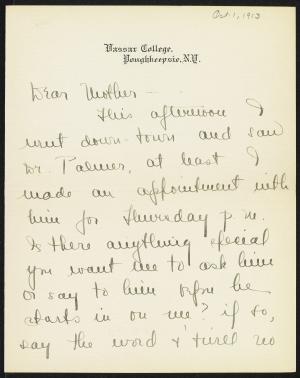 Oct 1, 1913
Vassar College,
Poughkeepsie, N.Y.
Dear Mother —
This afternoon I
went down-town and saw
Dr. Palmer, at least I
made an appointment with
him for Thursday p.m.
Is there anything special
you want me to ask him
or say to him before he
starts in on me? if so,
say the word & 'twill no